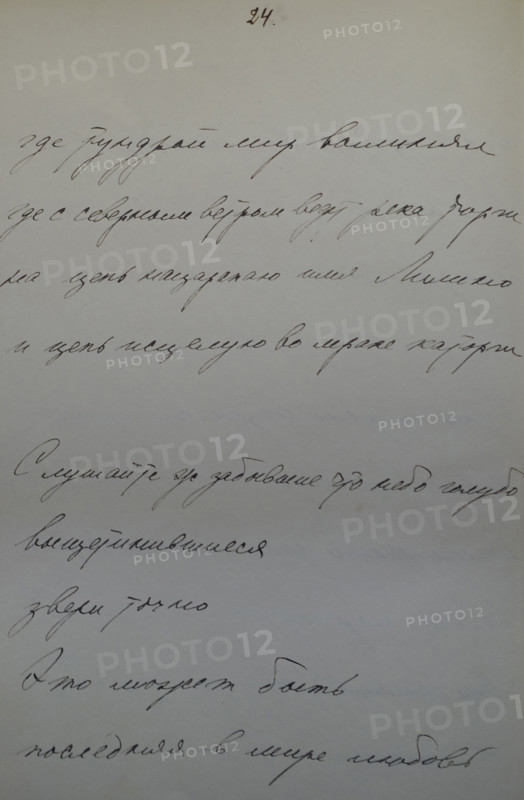 24.
где тундрой мир вылинял
где с северным ветром ведет река торги
на цепь нацарапаю имя Лилино
и цепь исцелую во мраке каторги
Слушайте ж забывшие что небо голубо
выщетинившиеся
звери точно
Это может быть
последняя в мире любовь
PHOTO12